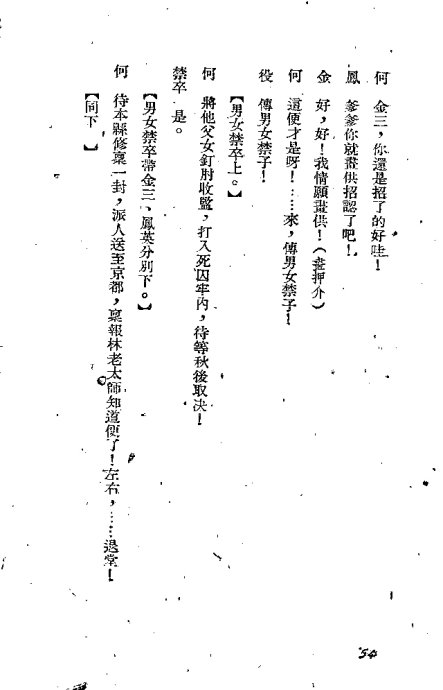 何　金三，你還是招了的好哇！
鳳　爹爹你就畫供招認了吧！
金　好，好！我情願畫供！（畫押介）
何　這便才是呀！……來，傳男女禁子！
役　傳男女禁子！
【男女禁卒上。】
何　將他父女釘肘收監，打入死囚牢內，待等秋後取決！
禁卒　是。
【男女禁卒帶金三、鳳英分別下。】
何　待本縣修稟一封，派人送至京都，稟報林老太師知道便了！左右，……退堂！
【同下】
54